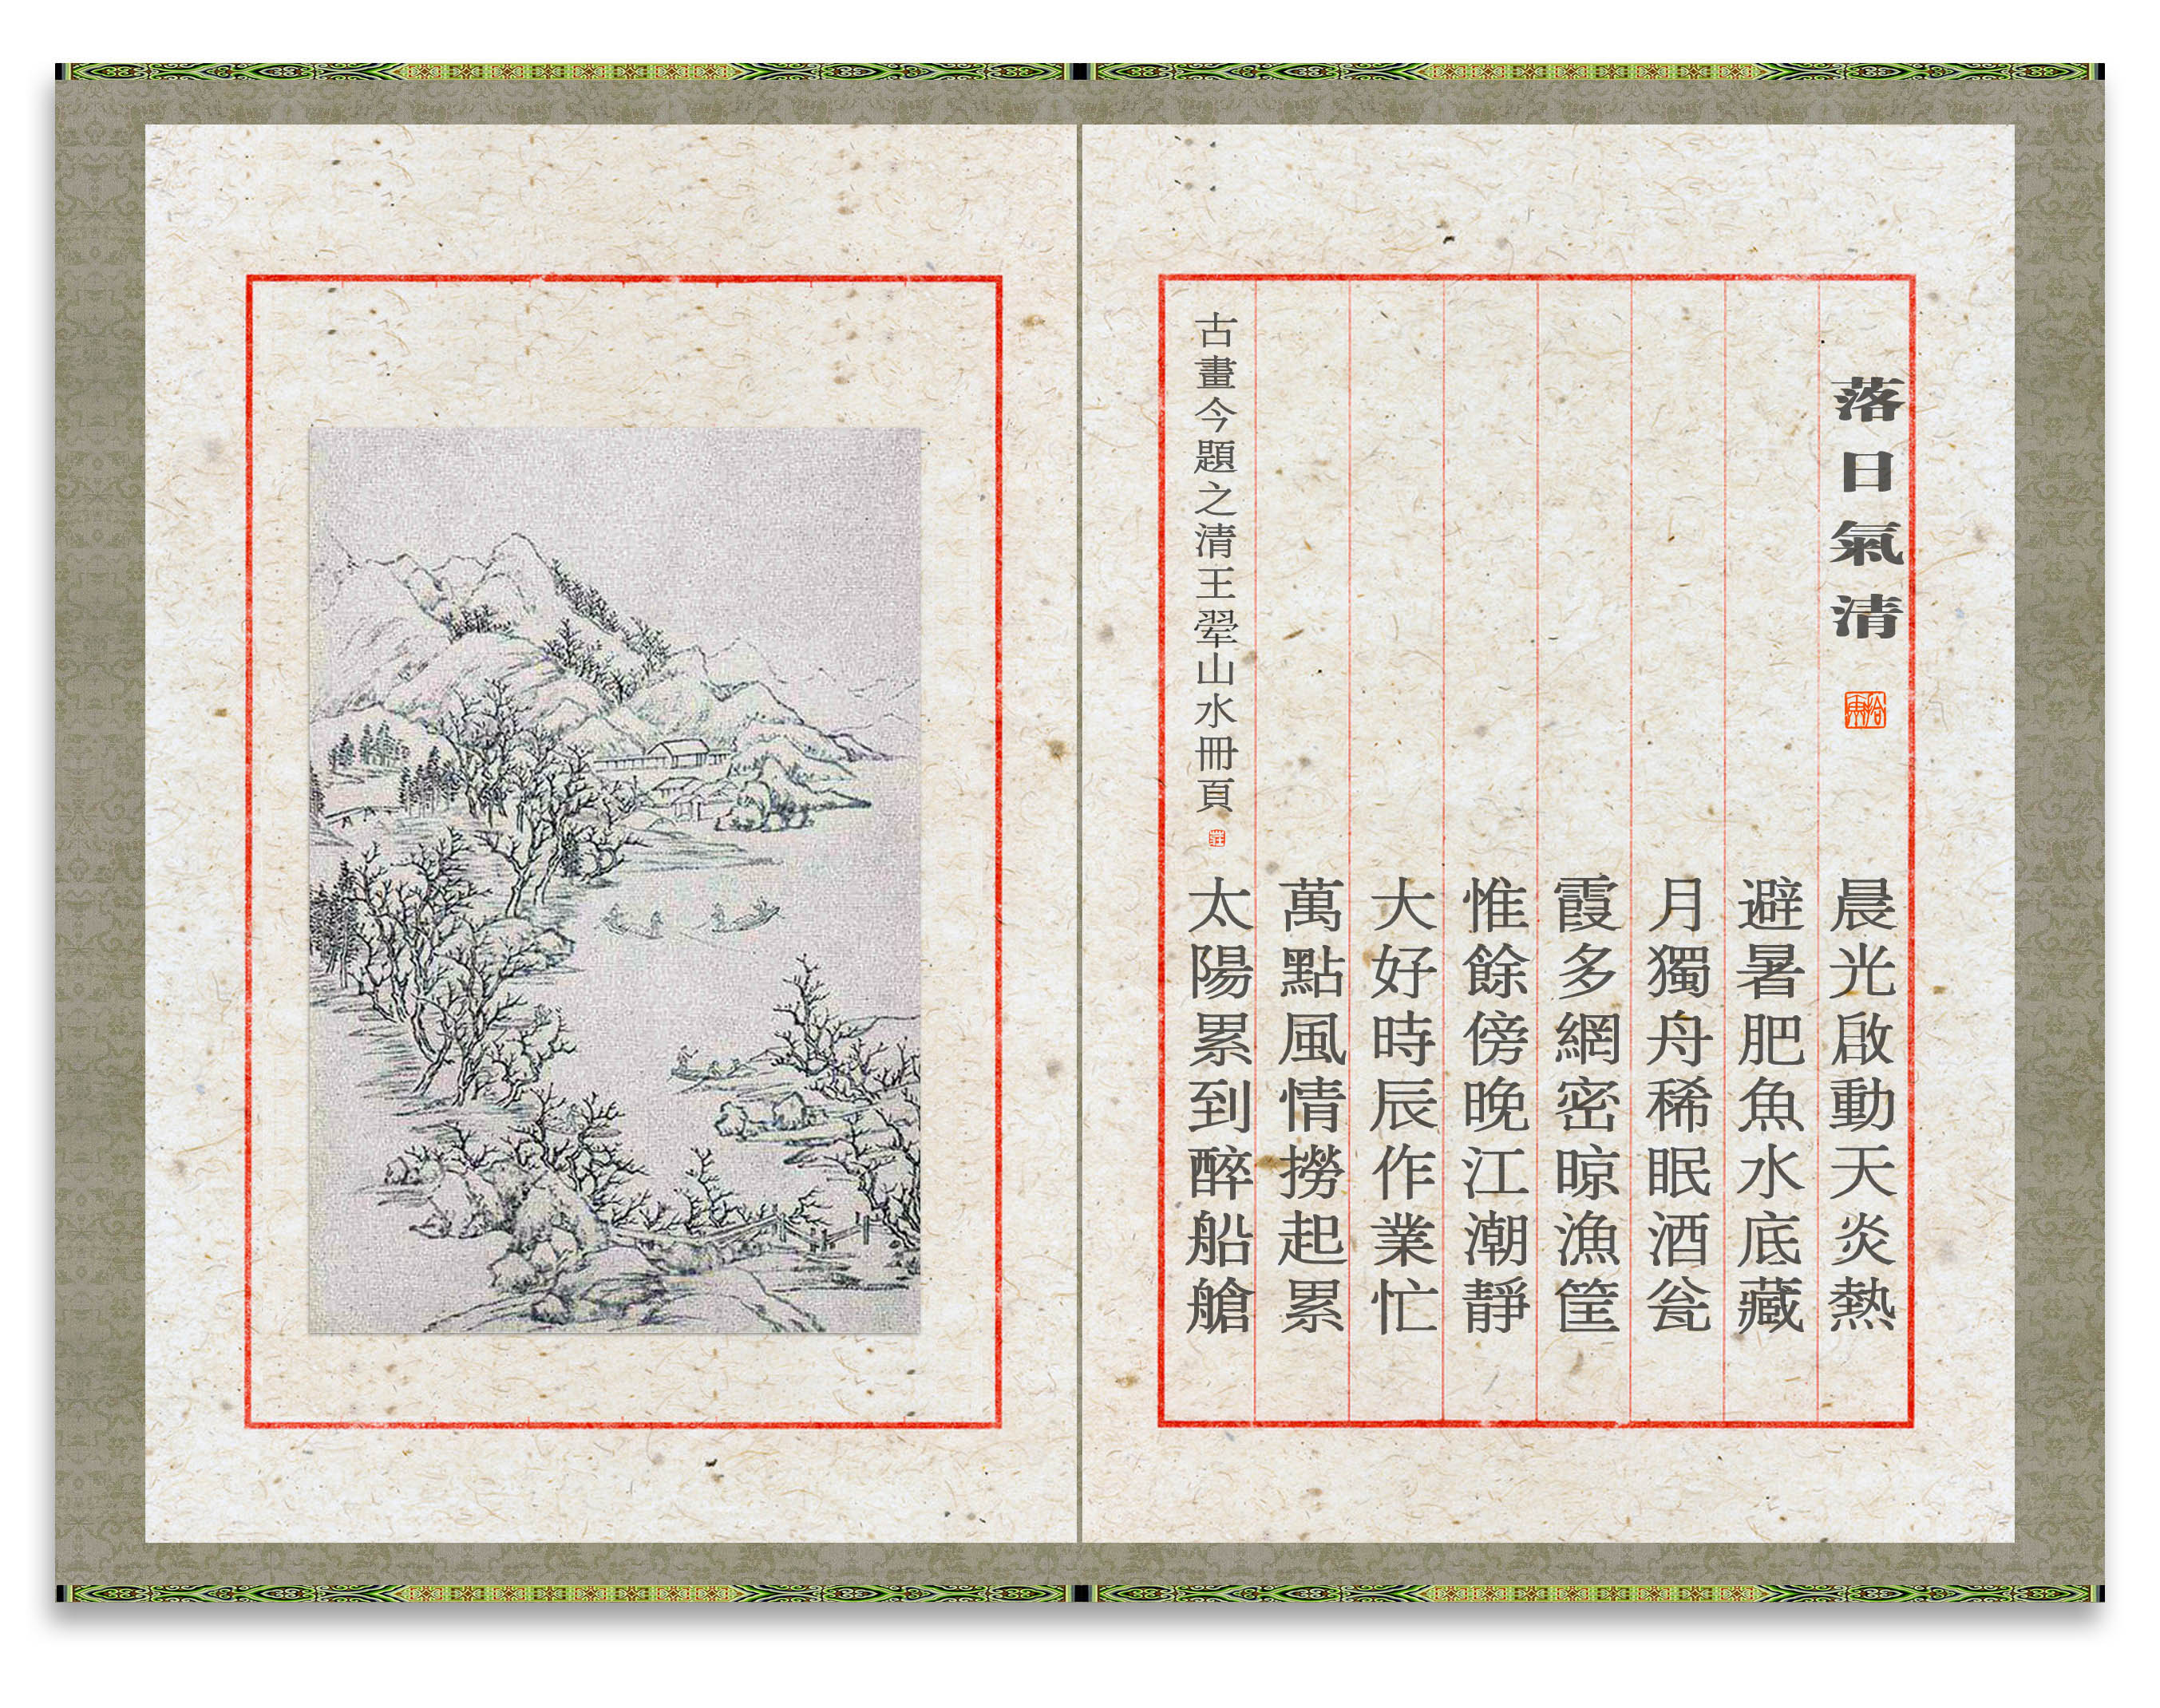 落日氣清
晨光啟動天炎熱
避暑肥魚水底藏
月獨舟稀眠酒瓮
霞多網密晾漁筐
惟餘傍晚江潮靜
大好時辰作業忙
萬點風情撈起累
太陽累到醉船艙
古畫今題之清王翚山水冊頁